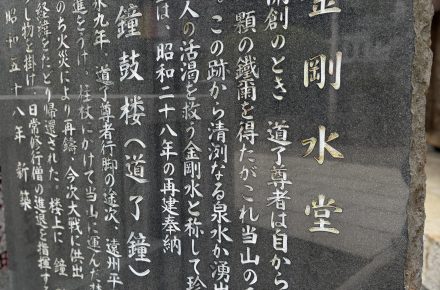 金剛水堂
開創のとき 道了尊者は自から
顆の鐵爾を得たがこれ当山の
。この跡から清冽なる泉水か湧出
人の活渇を救う金剛水と称して珍
は、昭和二十八年の再建奉納
鐘鼓楼(道了鐘)
永九年 道了尊者行脚の途次、遠州平
進をうけ、拄杖にかけて当山に運んだ
のち火災により再鋳、今次大戦に供出
経緯をたどり帰還された。楼上に 鐘
し物を掛け 日常修行僧の進退を指揮す
昭和五十八年 新築